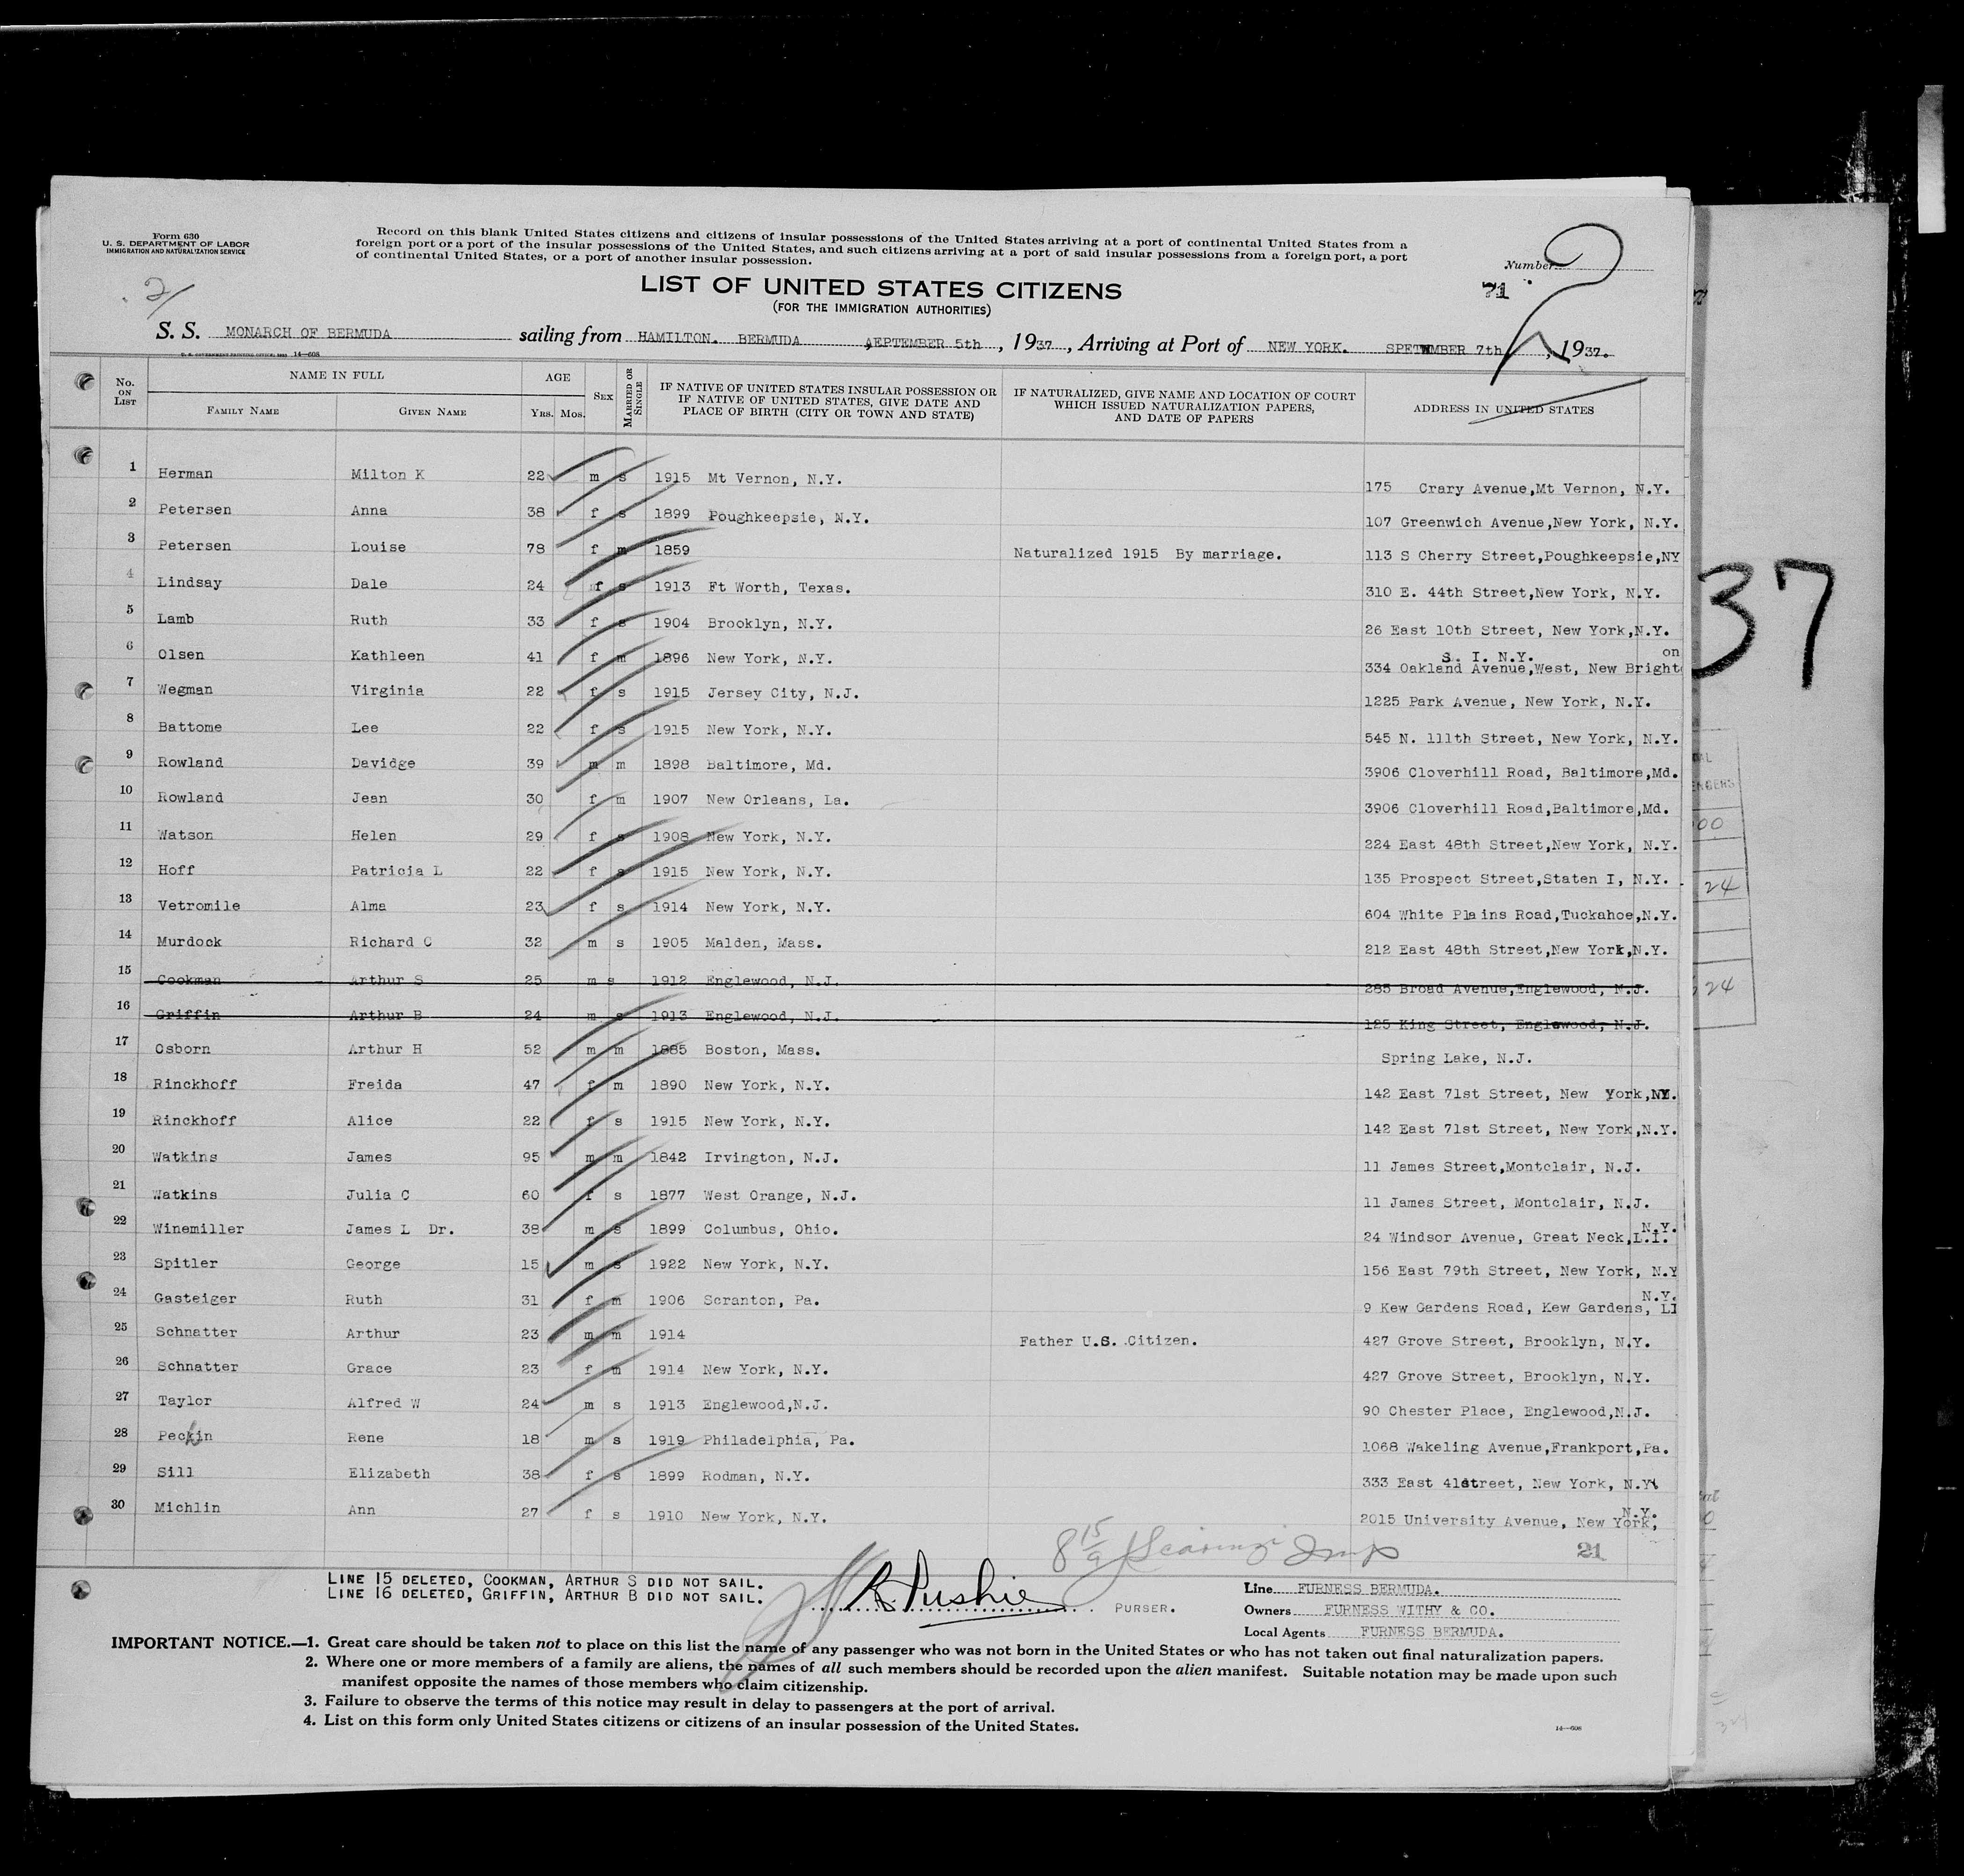 Form 630
U. S. DEPARTMENT OF LABOR
IMMIGRATION AND NATURALIZATION SERVICE
Record on this blank United States citizens and citizens of insular possessions of the United States arriving at a port of continental United States from a
foreign port or a port of the insular possessions of the United States, and such citizens arriving at a port of said insular possessions from a foreign port, a port
of continental United States, or a port of another insular possession.
Number
2/
LIST OF UNITED STATES CITIZENS
71
(FOR THE IMMIGRATION AUTHORITIES)
S. S. MONARCH OF BERMUDA sailing from HAMILTON. BERMUDA SEPTEMBER 5th , 1937 , Arriving at Port of NEW YORK. SPETEMBER 7th , 1937.
U. S. GOVERNMENT PRINTING OFFICE: 14—608
No. ON LIST NAME IN FULL AGE SEX MARRIED OR SINGLE IF NATIVE OF UNITED STATES INSULAR POSSESSION OR IF NATIVE OF UNITED STATES, GIVE DATE AND PLACE OF BIRTH (CITY OR TOWN AND STATE) IF NATURALIZED, GIVE NAME AND LOCATION OF COURT WHICH ISSUED NATURALIZATION PAPERS, AND DATE OF PAPERS ADDRESS IN UNITED STATES
FAMILY NAME GIVEN NAME YRS. MOS.
1 Herman Milton K 22 m s 1915 Mt Vernon, N.Y. 175 Crary Avenue,Mt Vernon, N.Y.
2 Petersen Anna 38 f s 1899 Poughkeepsie, N.Y. 107 Greenwich Avenue,New York, N.Y.
3 Petersen Louise 78 f m 1859 Naturalized 1915 By marriage. 113 S Cherry Street,Poughkeepsie,NY
4 Lindsay Dale 24 f s 1913 Ft Worth, Texas. 310 E. 44th Street,New York, N.Y.
5 Lamb Ruth 33 f s 1904 Brooklyn, N.Y. 26 East 10th Street, New York,N.Y.
6 Olsen Kathleen 41 f m 1896 New York, N.Y. 334 Oakland Avenue,West, New Brighton S. I. N.Y.
7 Wegman Virginia 22 f s 1915 Jersey City, N.J. 1225 Park Avenue, New York, N.Y.
8 Battome Lee 22 f s 1915 New York, N.Y. 545 N. 111th Street, New York, N.Y.
9 Rowland Davidge 39 m m 1898 Baltimore, Md. 3906 Cloverhill Road, Baltimore,Md.
10 Rowland Jean 30 f m 1907 New Orleans, La. 3906 Cloverhill Road,Baltimore,Md.
11 Watson Helen 29 f s 1908 New York, N.Y. 224 East 48th Street,New York, N.Y.
12 Hoff Patricia L 22 f s 1915 New York, N.Y. 135 Prospect Street,Staten I, N.Y.
13 Vetromile Alma 23 f s 1914 New York, N.Y. 604 White Plains Road,Tuckahoe,N.Y.
14 Murdock Richard C 32 m s 1905 Malden, Mass. 212 East 48th Street,New York,N.Y.
15 Cookman Arthur S 25 m s 1912 Englewood, N.J. 285 Broad Avenue,Englewood, N.J.
16 Griffin Arthur B 24 m s 1913 Englewood, N.J. 125 King Street, Englewood, N.J.
17 Osborn Arthur H 52 m m 1885 Boston, Mass. Spring Lake, N.J.
18 Rinckhoff Freida 47 f m 1890 New York, N.Y. 142 East 71st Street, New York,NY.
19 Rinckhoff Alice 22 f s 1915 New York, N.Y. 142 East 71st Street, New York,N.Y.
20 Watkins James 95 m m 1842 Irvington, N.J. 11 James Street,Montclair, N.J.
21 Watkins Julia C 60 f s 1877 West Orange, N.J. 11 James Street, Montclair, N.J.
22 Winemiller James L Dr. 38 m s 1899 Columbus, Ohio. 24 Windsor Avenue, Great Neck,L.I. N.Y.
23 Spitler George 15 m s 1922 New York, N.Y. 156 East 79th Street, New York, N.Y
24 Gasteiger Ruth 31 f m 1906 Scranton, Pa. 9 Kew Gardens Road, Kew Gardens, LI N.Y.
25 Schnatter Arthur 23 m m 1914 Father U.S. Citizen. 427 Grove Street, Brooklyn, N.Y.
26 Schnatter Grace 23 f m 1914 New York, N.Y. 427 Grove Street, Brooklyn, N.Y.
27 Taylor Alfred W 24 m s 1913 Englewood,N.J. 90 Chester Place, Englewood,N.J.
28 Peckin Rene 18 m s 1919 Philadelphia, Pa. 1068 Wakeling Avenue,Frankport,Pa.
29 Sill Elizabeth 38 f s 1899 Rodman, N.Y. 333 East 41street, New York, N.Y.
30 Michlin Ann 27 f s 1910 New York, N.Y. 2015 University Avenue, New York, N.Y.
21
LINE 15 DELETED, COOKMAN, ARTHUR S DID NOT SAIL.
LINE 16 DELETED, GRIFFIN, ARTHUR B DID NOT SAIL.
R. Pushie PURSER.
Line FURNESS BERMUDA.
Owners FURNESS WITHY & CO.
Local Agents FURNESS BERMUDA.
IMPORTANT NOTICE.—1. Great care should be taken not to place on this list the name of any passenger who was not born in the United States or who has not taken out final naturalization papers.
2. Where one or more members of a family are aliens, the names of all such members should be recorded upon the alien manifest. Suitable notation may be made upon such
manifest opposite the names of those members who claim citizenship.
3. Failure to observe the terms of this notice may result in delay to passengers at the port of arrival.
4. List on this form only United States citizens or citizens of an insular possession of the United States.
14—608
37
00
24
24